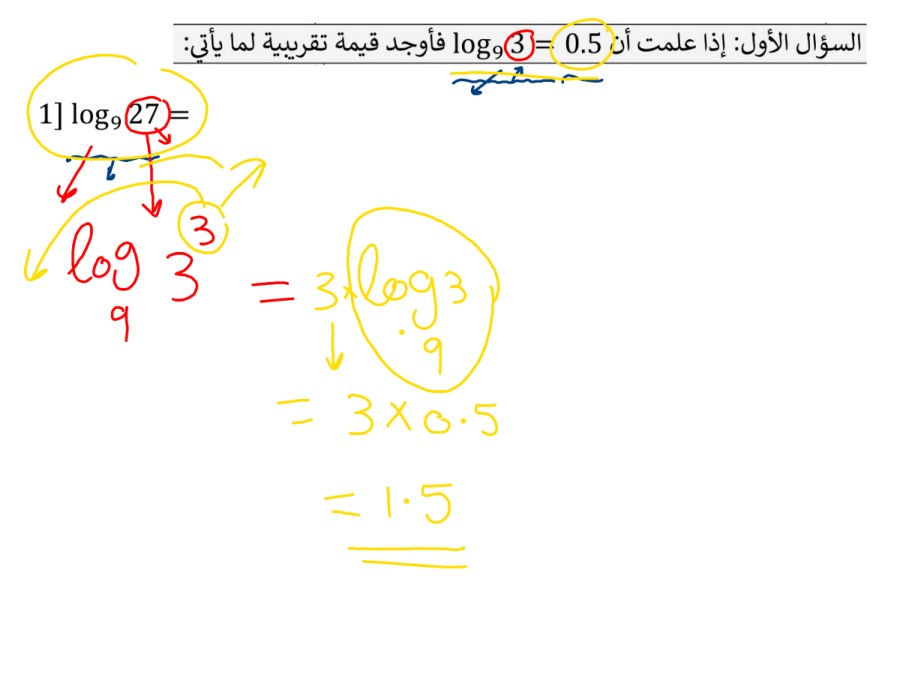 السؤال الأول: إذا علمت أن log₉ 3 = 0.5 فأوجد قيمة تقريبية لما يأتي:
1] log₉ 27 =
log₉ 3³ = 3 × log₉ 3
= 3 × 0.5
= 1.5